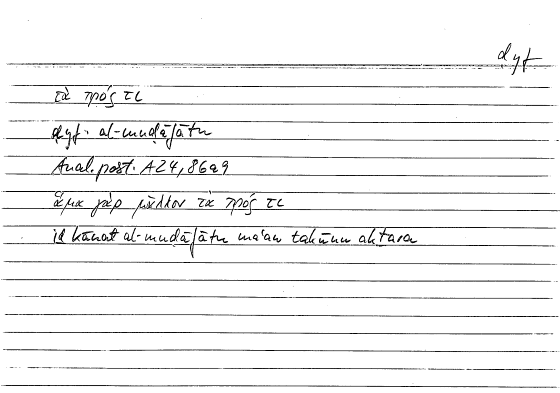 ḍyf
τὰ πρός τι
ḍyf. al-muḍāfātu
Anal. post. A24, 86a9
ἅμα γὰρ μᾶλλον τὰ πρός τι
iḏ kānat al-muḍāfātu ma'an takūnu akṯara